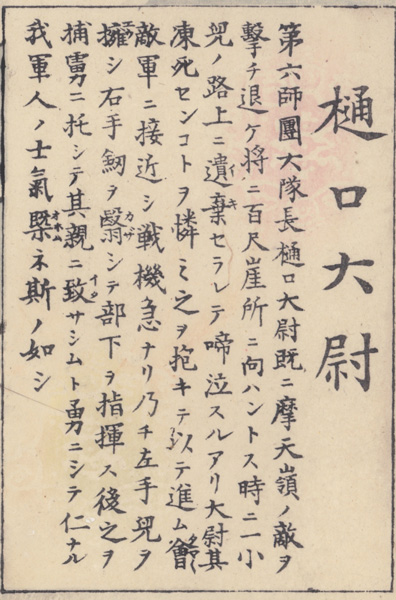 樋口大尉
第六師團大隊長樋口大尉既ニ摩天嶺ノ敵ヲ
撃チ退ケ将ニ百尺崖所ニ向ハントス時ニ一小
兒ノ路上ニ遺棄セラレテ啼泣スルアリ大尉其
凍死センコトヲ憐ミ之ヲ抱キテ以テ進ム會
敵軍ニ接近シ戦機急ナリ乃チ左手兒ヲ
擁シ右手釼ヲ翳シテ部下ヲ指揮ス後之ヲ
捕虜ニ托シテ其親ニ致サシムト勇ニシテ仁ナル
我軍人ノ士氣槩ネ斯ノ如シ